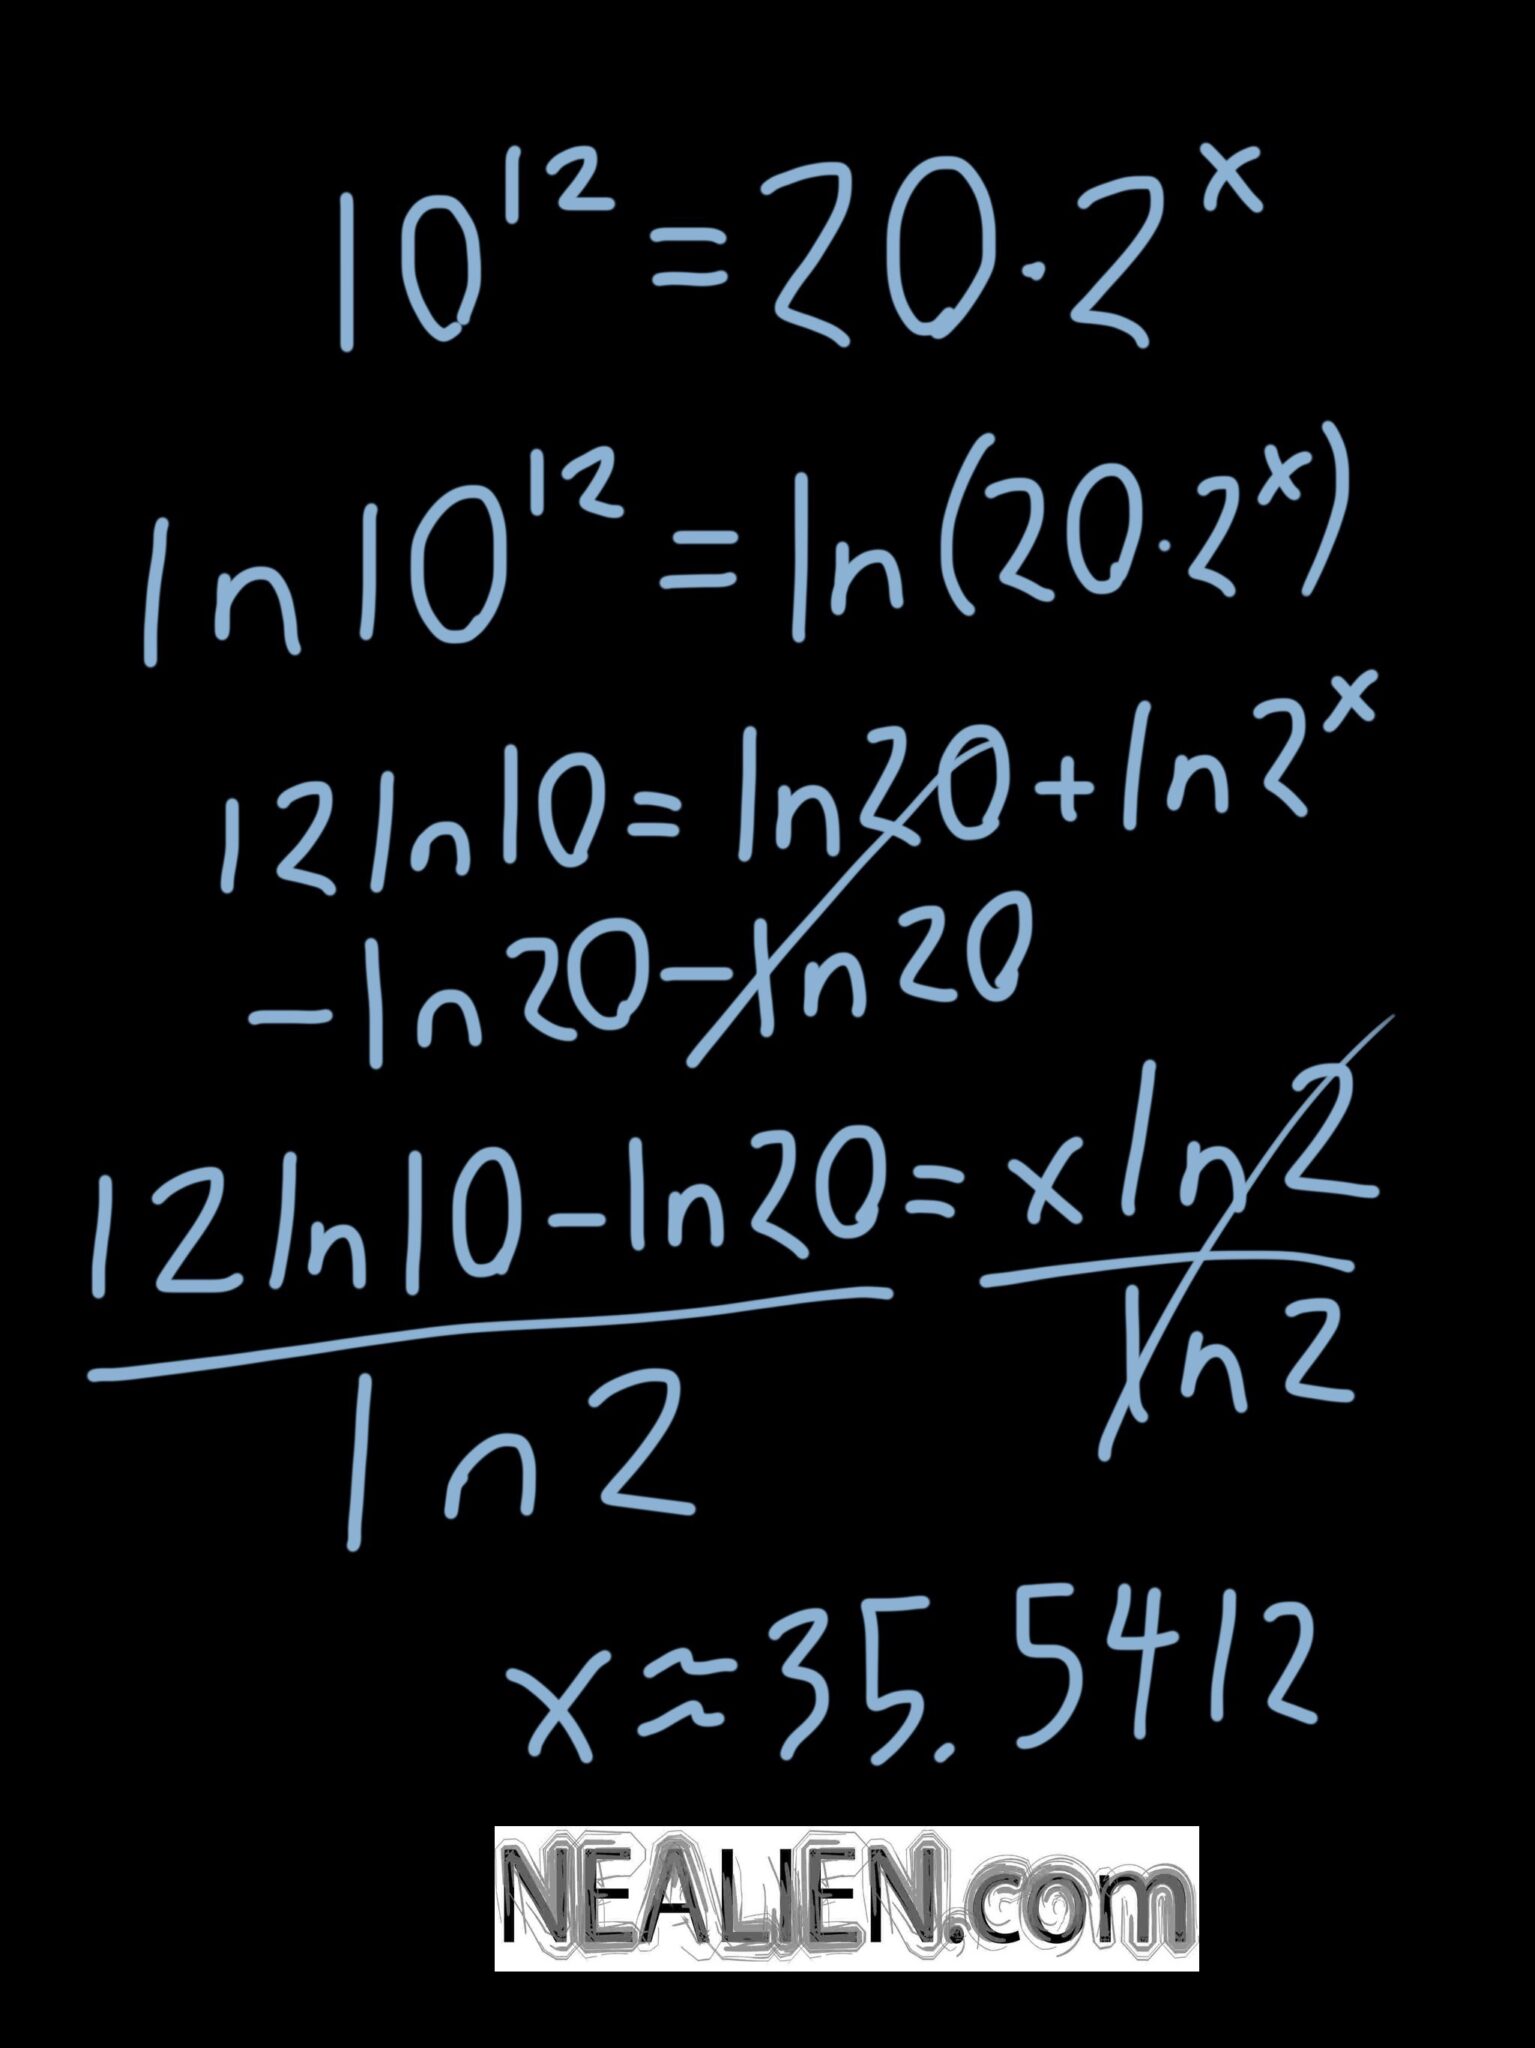 10¹² = 20 · 2ˣ
ln 10¹² = ln(20 · 2ˣ)
12 ln 10 = ln 20 + ln 2ˣ
- ln 20 - ln 20
12 ln 10 - ln 20 = x ln 2
ln 2 ln 2
x ≈ 35.5412
NEALIEN.com